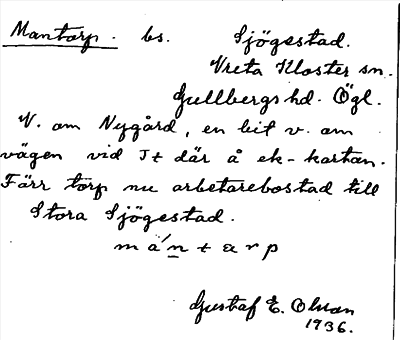 Mantorp. bs. Sjögestad.
Vreta Kloster sn.
Gullbergs hd. Ögl.
V. om Nygård, en bit v. om
vägen vid J+ där å ek-kartan.
Förr torp nu arbetarebostad till
Stora Sjögestad.
mántarp
Gustaf E. Olson
1936.